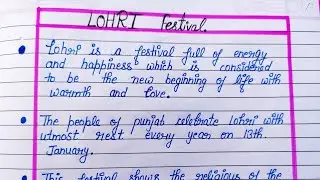 LOHRI Festival.
Lohri is a festival full of energy
and happiness which is considered
to be the new beginning of life with
warmth and love.
The people of punjab celebrate Lohri with
utmost rest every year on 13th
January.
This festival shows the religious of the